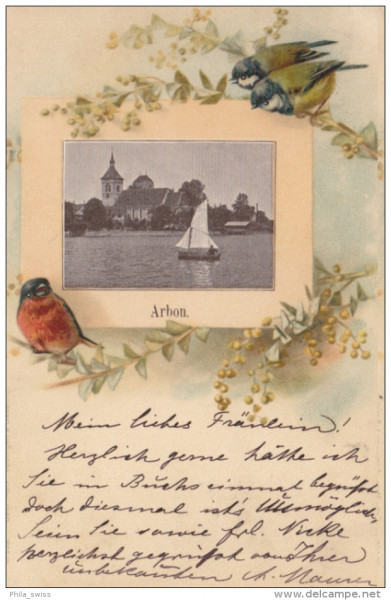 Arbon.
Mein liebes Fräulein!
Herzlich gerne hätte ich
Sie in Buchs einmal begrüßt
doch diesmal ist's Unmöglich.
Seien Sie sowie frl. Nicke
herzlichst gegrüsst von Ihrer
unbekannten A. Maurer
Phila_swiss
delcampe.net